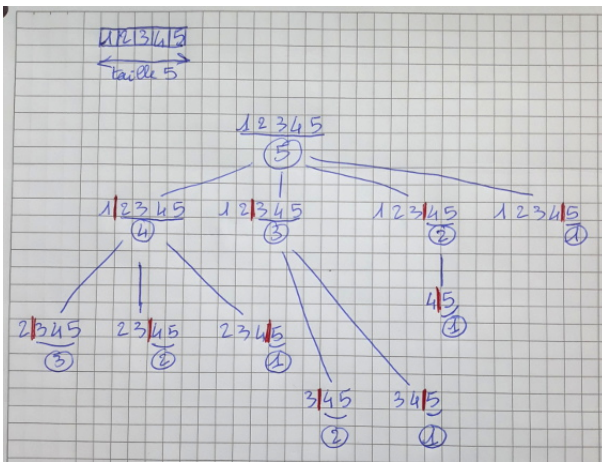 1|2|3|4|5
taille 5
1 2 3 4 5
5
1|2 3 4 5 1 2|3 4 5 1 2 3|4 5 1 2 3 4|5
4 3 2 1
4|5
1
2|3 4 5 2 3|4 5 2 3 4|5
3 2 1
3|4 5 3 4|5
2 1